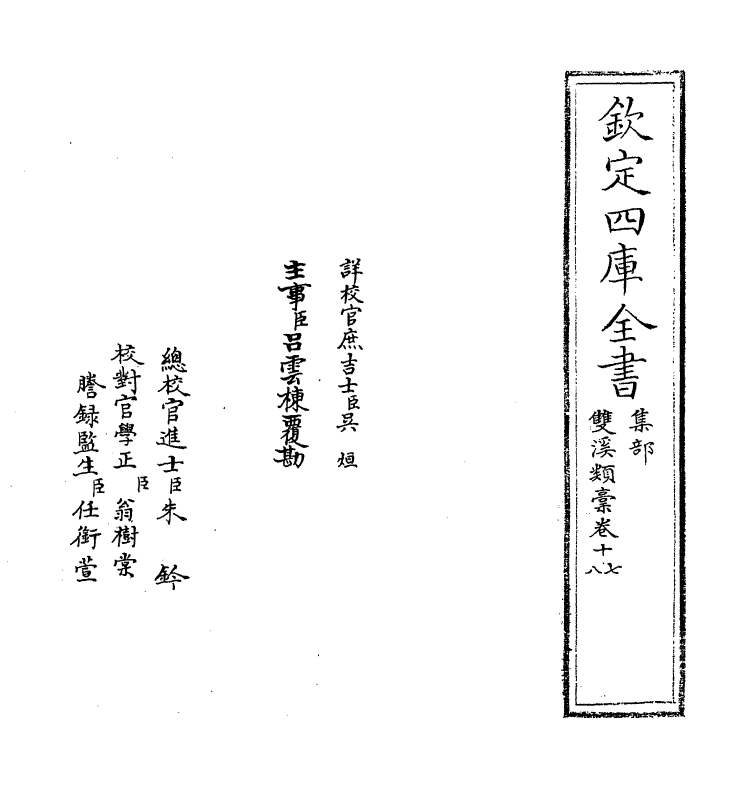 欽定四庫全書
集部
雙溪類藁卷十七八
詳校官庶吉士臣吳烜
主事臣呂雲棟覆勘
總校官進士臣朱鈐
校對官學正臣翁樹棠
謄録監生臣任銜萱